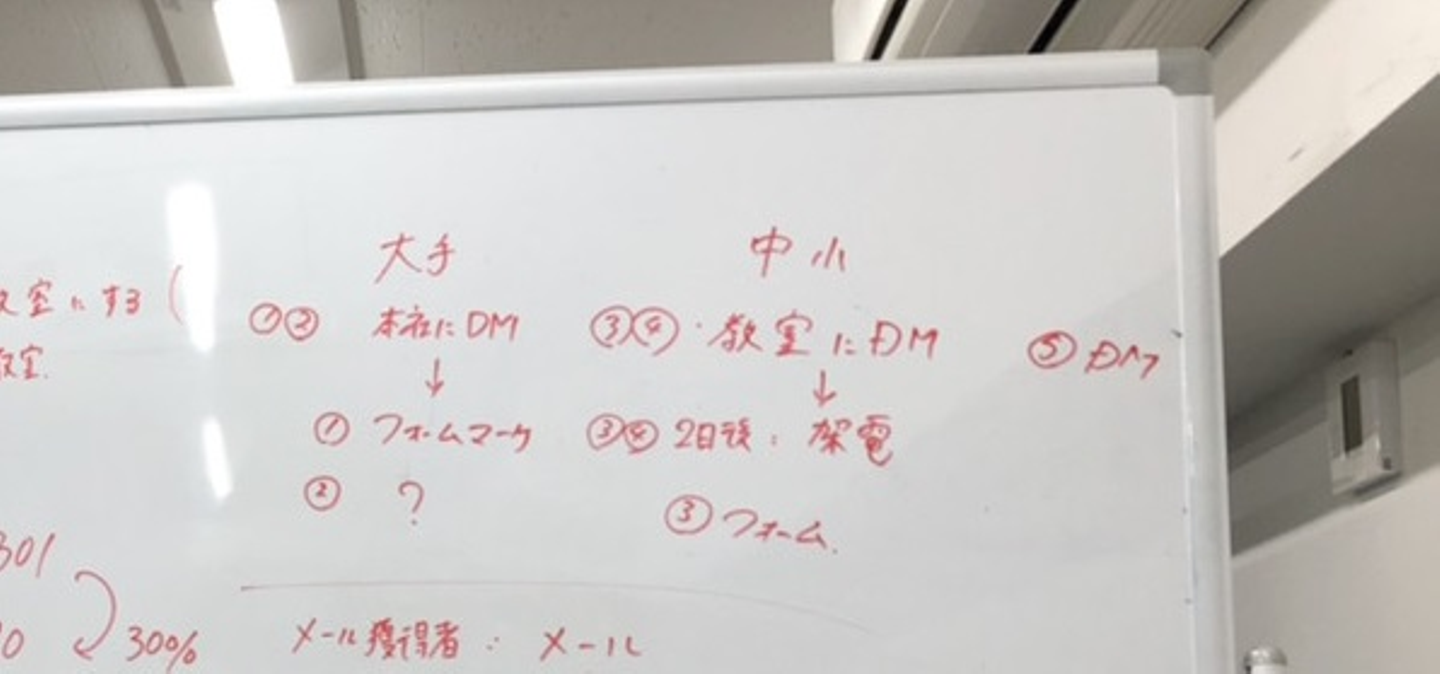 大手
中小
室にする (
①② 本社にDM
③④・教室にDM
⑤ DM
教室.
↓
↓
① フォームマーケ
③④ 2日後: 架電
② ?
③ フォーム.
301
30%
メール獲得者: メール